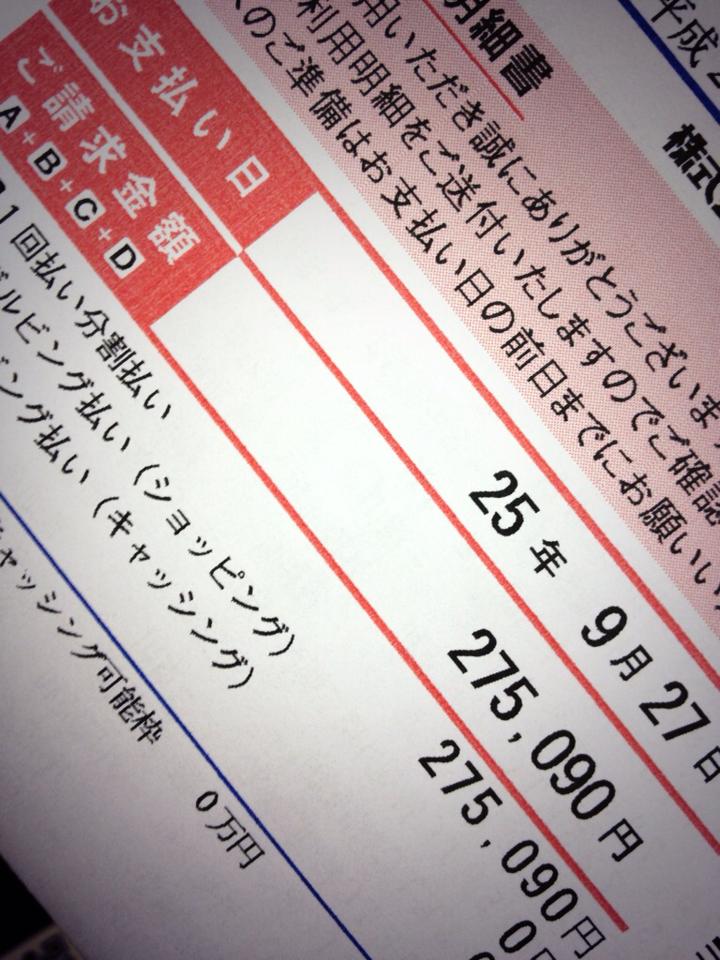 平成2
株式
明細書
用いただき誠にありがとうございま
利用明細をご送付いたしますのでご確認
のご準備はお支払い日の前日までにお願いい
お支払い日 25年 9月 27日
ご請求金額 275,090円
A+B+C+D
1回払い分割払い 275,090円
ルビング払い(ショッピング) 0
ング払い(キャッシング)
ャッシング可能枠
0万円